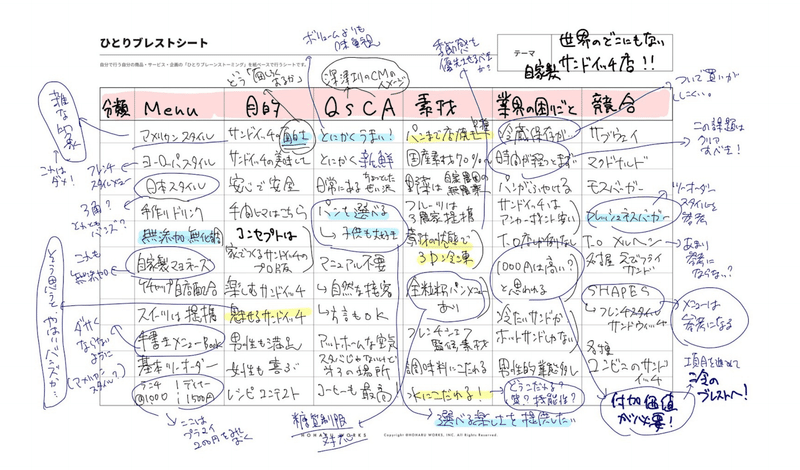 ひとりブレストシート
自分で行う自分の商品・サービス・企画の「ひとりブレーンストーミング」を紙ベースで行うシートです。
テーマ
世界のどこにもない
自家製 サンドイッチ店!!
ボリュームよりも
味重視
季節感を
どう「面白く」
するか?
深津エリのCMの
イメージ
分類 Menu 目的 QSCA 素材 業界の困りごと 競合
雑な印象
これは
ダメ!
フレンチ
スタイルメニュー
ついて買いが
しにくい。
この課題は
クリア
すべき!
アメリカンスタイル サンドイッチの面白さ とにかくうまい! パンまで店焼き 冷蔵保存が サブウェイ
ヨーロパスタイル サンドイッチの美味しさ とにかく新鮮 国産素材70% 時間が経つとまずい マクドナルド
日本スタイル 安心で安全 日常にある ちょっとしたぜい沢 野菜は自家農園の無農薬 パンがふやける モスバーガー
手作りドリンク 手間ヒマはこちら パンを選べる フルーツは3農家提携 サンドイッチは アンカーポイントない フレッシュネスバーガー
無添加 無化調 コンセプトは ↳子供も大好き
自家製マヨネーズ 家でつくるサンドイッチの PRO版 マニュアル不要 3Dン冷凍 1000円は高い? と思われる
ケチャップ自店配合 楽しむサンドイッチ ↳自然な接客 全粒粉パンメニュー あり SHAPES
スイーツは提携 魅せるサンドイッチ ↳方言もOK 冷たいサンドか ホットサンドしかない ↳フレンチスタイル サンドウィッチ
手書きメニューBook 男性も満足 アットホームな空気 フレンチシェフ 監修素材 各種
基本ツーオーダー 女性も喜ぶ スタバじゃないけど 第3の場所 調味料にこだわる 男性的業態多し コンビニのサンドイッチ
ランチ @1000 ディナー 1500円 レシピコンテスト コーヒーも最高! 水にこだわる!
どうこだわる?
質?機能性?
付加価値
が必要!
ツーオーダー
スタイルを
参考
あまり
参考に
ならない??
メニューは
参考になる
項目を進めて
ブレストへ!
これも
無添加◎
ダサく
ならない
ように
(アメリカン
スタイル?)
ここは
プライス
200円をみて
おく
糖質制限
対応
選べる楽しさを提供したい
NONAHARU WORKS
Copyright NONAHARU WORKS, INC. All Rights Reserved.